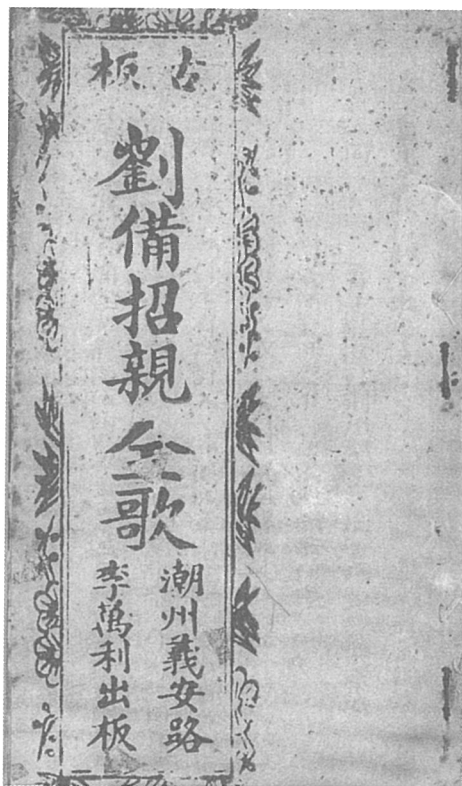 古板
劉備招親全歌
潮州義安路
李萬利出板